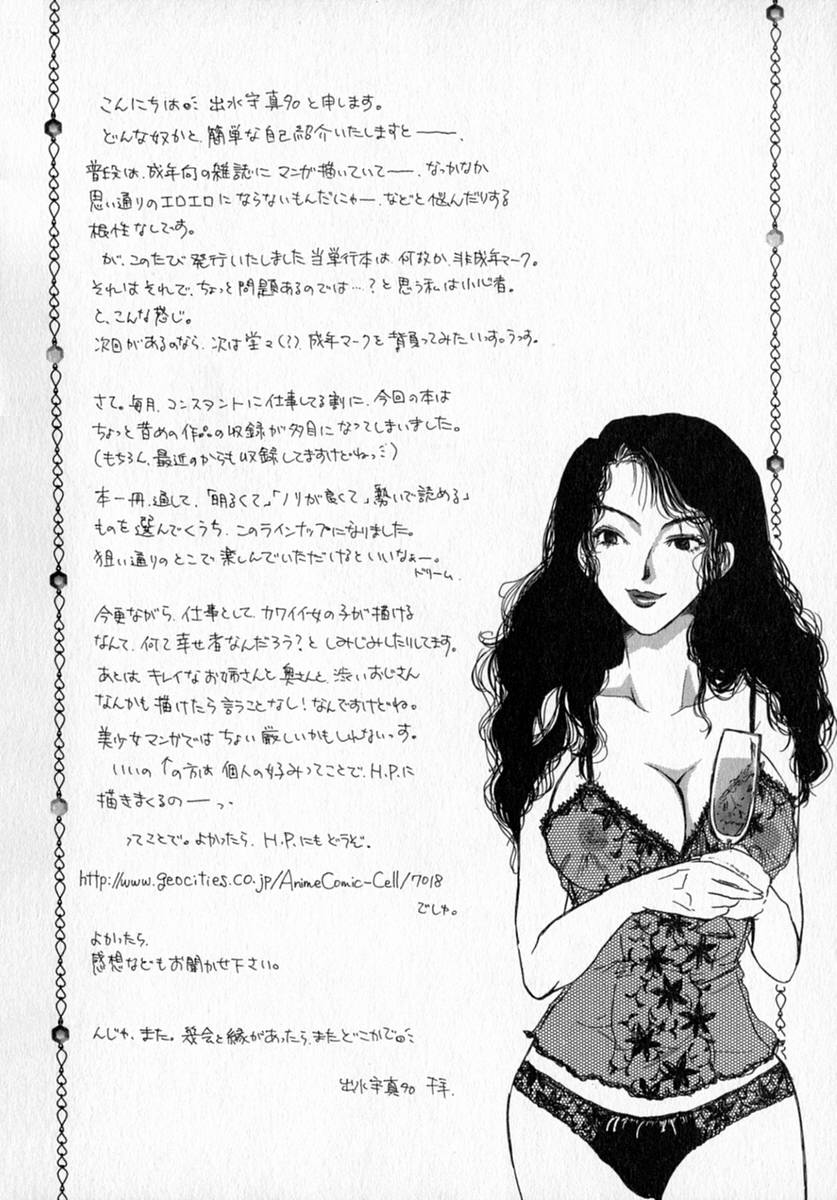 こんにちは。 出水宇真90と申します。
どんな奴かと、簡単な自己紹介いたしますと──、
普段は、成年向の雑誌に マンガ描いていて──、なっかなか
思い通りのエロエロにならないもんだにゃー、などと悩んだりする
根性なしです。
が、このたび 発行いたしました当単行本は 何故か、非成年マーク。
それはそれで、ちょっと問題あるのでは…?と思う私は小心者。
と、こんな感じ。
次回があるのなら、次は堂々(?)、成年マークを背負ってみたいっす。うっす。
さて。毎月、コンスタントに仕事してる割に、今回の本は
ちょっと昔めの作品の収録が多目になってしまいました。
(もちろん、最近のからも収録してますけどねっ)
本一冊、通して、「明るくて」「ノリが良くて」「勢いで読める」
ものを選んでくうち、このラインナップになりました。
狙い通りのとこで楽しんでいただけるといいなぁー。
ドリーム。
今更ながら、仕事として、カワイイ女の子が描ける
なんて、何て幸せ者なんだろう?と しみじみしたりしてます。
あとは キレイなお姉さんと奥さんと、渋いおじさん
なんかも描けたら言うことなし!なんですけどね。
美少女マンガではちょい厳しいかもしれないっす。
いいの ↑の方は 個人の好みってことで、H.P.に
描きまくるのーっ、
ってことで。よかったら、H.P.にもどうぞ。
http://www.geocities.co.jp/AnimeComic-Cell/7018
でしゅ。
よかったら、
感想などもお聞かせ下さい。
んじゃ、また。機会と縁があったら、またどこかで。
出水宇真90 千年.